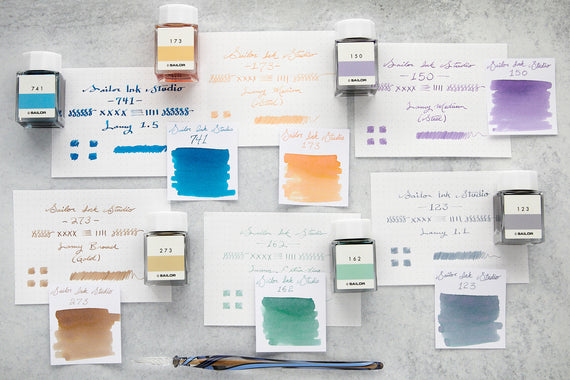 741
SAILOR
Sailor Ink Studio
-741-
XXXX
Lamy 1.5
Sailor Ink Studio
741
173
SAILOR
Sailor Ink Studio
-173-
XXXX
Lamy Medium
(Steel)
Sailor Ink Studio
173
150
SAILOR
Sailor Ink Studio
-150-
XXXX
Lamy Medium
(Steel)
Sailor Ink Studio
150
Sailor Ink Studio
-273-
XXXX
Lamy Broad
(Gold)
273
SAILOR
Sailor Ink Studio
273
Sailor Ink Studio
162
XXXX
162
SAILOR
Sailor Ink Studio
162
Sailor Ink Studio
-123-
XXXX
Lamy 1.1
123
SAILOR
Sailor Ink Studio
123